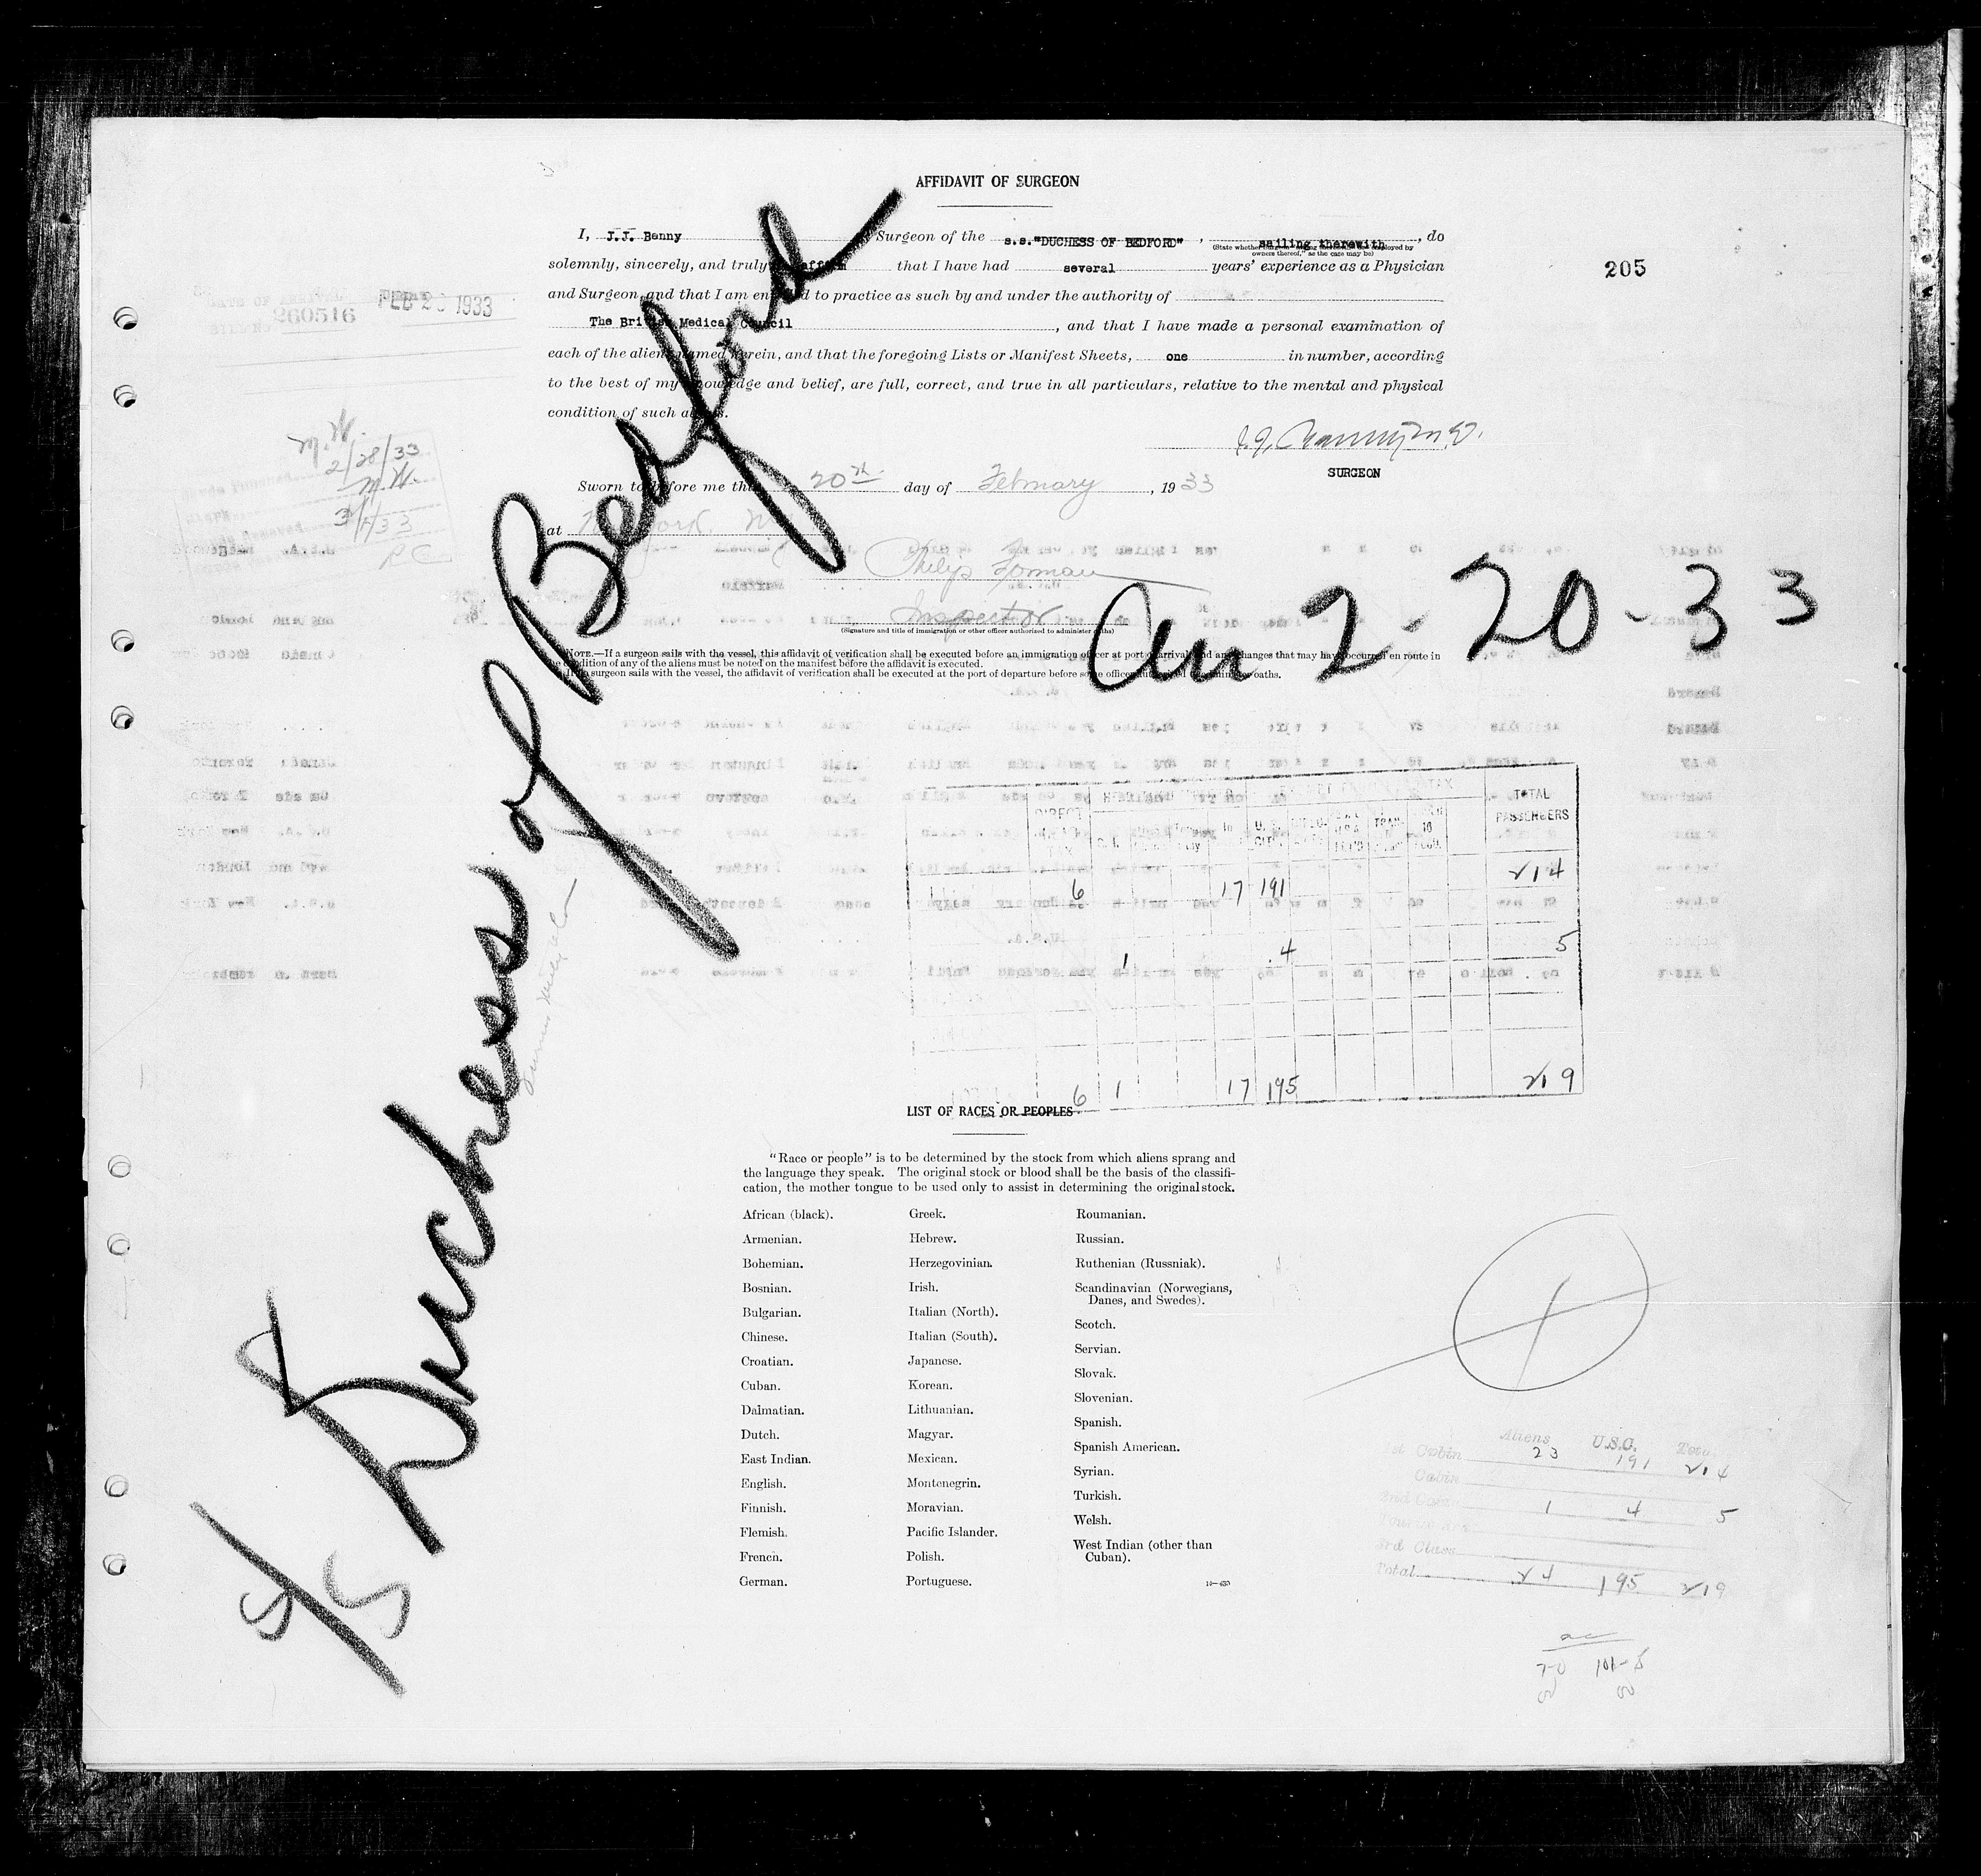 AFFIDAVIT OF SURGEON
I, J.J. Benny Surgeon of the s.s. "DUCHESS OF BEDFORD", sailing therewith, do
owners thereof," as the case may be)
solemnly, sincerely, and truly affirm that I have had several years' experience as a Physician
205
and Surgeon and that I am entitled to practice as such by and under the authority of
The British Medical Council, and that I have made a personal examination of
each of the aliens named herein, and that the foregoing Lists or Manifest Sheets, one in number, according
to the best of my knowledge and belief, are full, correct, and true in all particulars, relative to the mental and physical
condition of such aliens.
260516 FEB 20 1933
M.W.
2/28/33
M.W.
RC
SURGEON
Sworn to before me this 20 day of February, 1933
at New York
Philip Forman
Inspector
(Signature and title of immigration or other officer authorized to administer oaths)
NOTE.—If a surgeon sails with the vessel, this affidavit of verification shall be executed before an immigration officer at port of arrival and any changes that may have occurred en route in
the condition of any of the aliens must be noted on the manifest before the affidavit is executed.
If no surgeon sails with the vessel, the affidavit of verification shall be executed at the port of departure before some officer authorized to administer oaths.
S/S Duchess of Bedford
Arr 2-20-33
TOTAL
PASSENGERS
DIRECT
6 17 191 214
1 4 5
6 1 17 195 219
LIST OF RACES OR PEOPLES
"Race or people" is to be determined by the stock from which aliens sprang and
the language they speak. The original stock or blood shall be the basis of the classifi-
cation, the mother tongue to be used only to assist in determining the original stock.
African (black).
Armenian.
Bohemian.
Bosnian.
Bulgarian.
Chinese.
Croatian.
Cuban.
Dalmatian.
Dutch.
East Indian.
English.
Finnish.
Flemish.
French.
German.
Greek.
Hebrew.
Herzegovinian.
Irish.
Italian (North).
Italian (South).
Japanese.
Korean.
Lithuanian.
Magyar.
Mexican.
Montenegrin.
Moravian.
Pacific Islander.
Polish.
Portuguese.
Roumanian.
Russian.
Ruthenian (Russniak).
Scandinavian (Norwegians,
Danes, and Swedes).
Scotch.
Servian.
Slovak.
Slovenian.
Spanish.
Spanish American.
Syrian.
Turkish.
Welsh.
West Indian (other than
Cuban).
Aliens U.S.C. Total
1st Cabin 23 191 214
Cabin
2nd Cabin 1 4 5
3rd Class
Total 24 195 219